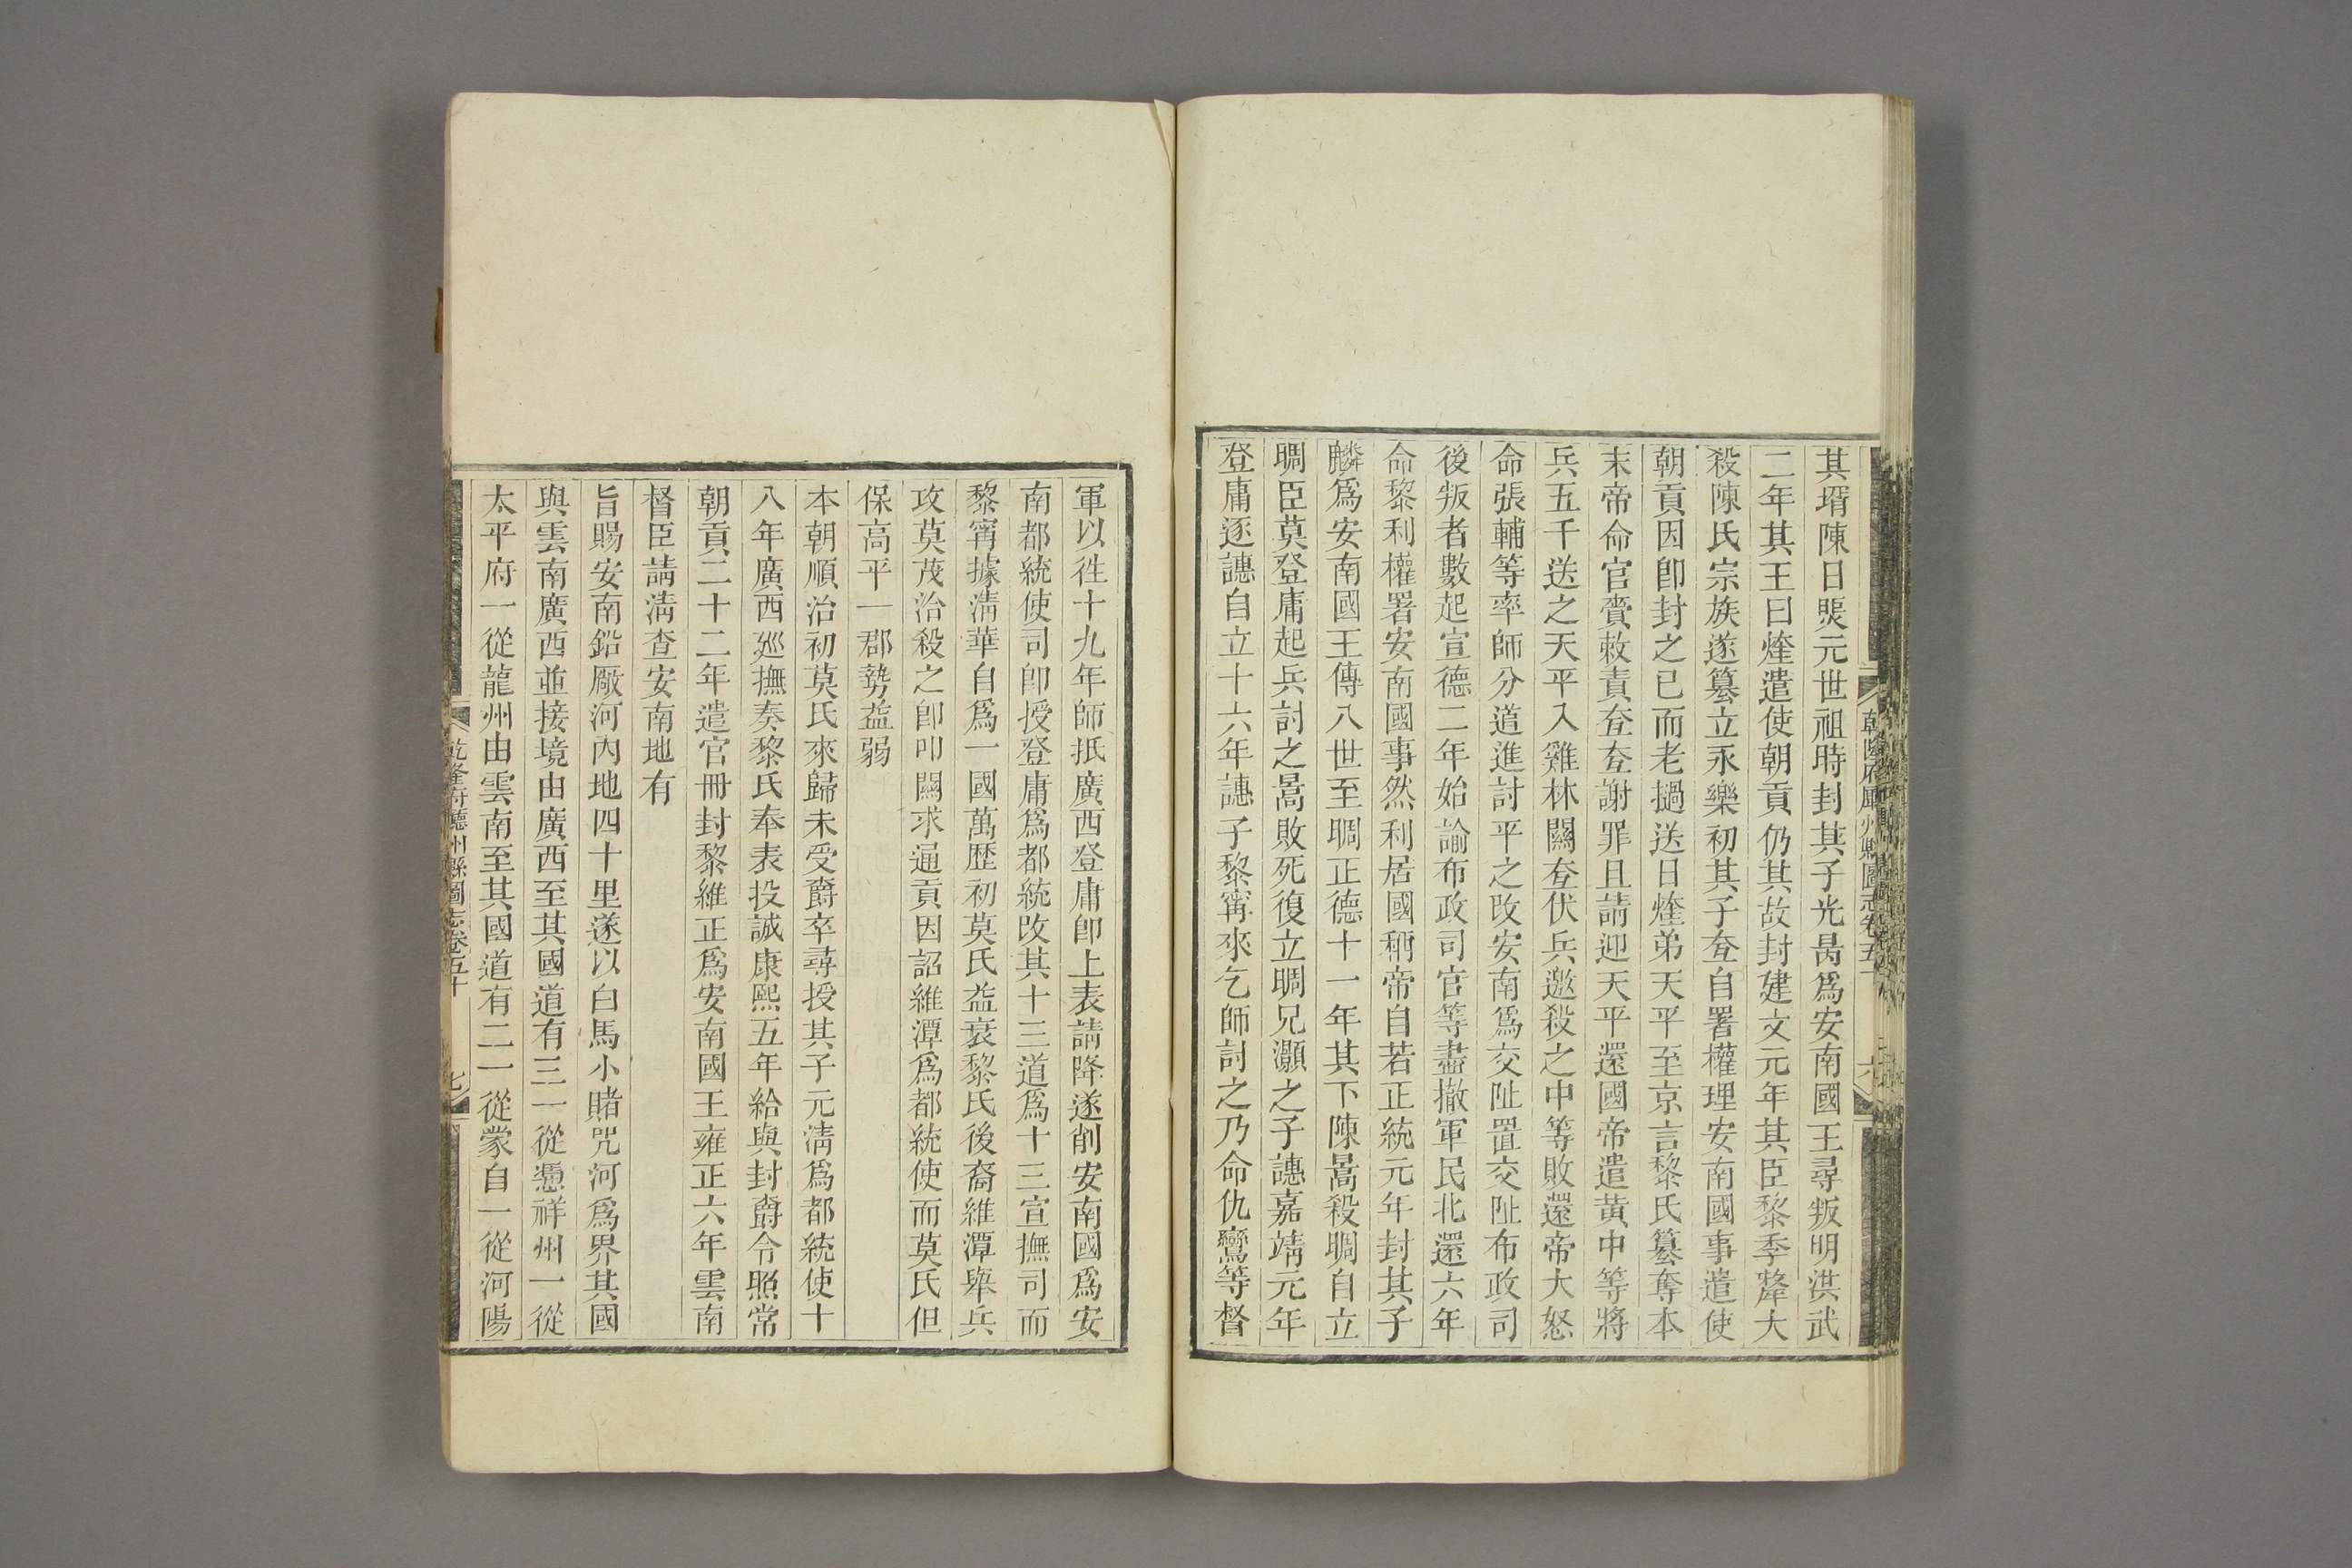 其壻陳日煚元世祖時封其子光昺爲安南國王尋叛明洪武
二年其王曰煃遣使朝貢仍其故封建文元年其臣黎季犛大
殺陳氏宗族遂篡立永樂初其子夽自署權理安南國事遣使
朝貢因卽封之已而老撾送日煃弟天平至京言黎氏篡奪本
末帝命官賫敕責夽夽謝罪且請迎天平還國帝遣黄中等將
兵五千送之天平入雞林關夽伏兵邀殺之中等敗還帝大怒
命張輔等率師分道進討平之改安南爲交阯置交阯布政司
後叛者數起宣德二年始諭布政司官等盡撤軍民北還六年
命黎利權署安南國事然利居國稱帝自若正統元年封其子
麟爲安南國王傳八世至晭正德十一年其下陳暠殺晭自立
晭臣莫登庸起兵討之暠敗死復立晭兄灝之子譓嘉靖元年
登庸逐譓自立十六年譓子黎甯來乞師討之乃命仇鸞等督
軍以徃十九年師抵廣西登庸卽上表請降遂削安南國爲安
南都統使司卽授登庸爲都統改其十三道爲十三宣撫司而
黎甯據淸華自爲一國萬歷初莫氏益衰黎氏後裔維潭舉兵
攻莫茂治殺之卽叩關求通貢因詔維潭爲都統使而莫氏但
保高平一郡勢益弱
本朝順治初莫氏來歸未受爵卒尋授其子元淸爲都統使十
八年廣西廵撫奏黎氏奉表投誠康熙五年給與封爵令照常
朝貢二十二年遣官冊封黎維正爲安南國王雍正六年雲南
督臣請淸查安南地有
旨賜安南鉛厰河內地四十里遂以白馬小賭咒河爲界其國
與雲南廣西並接境由廣西至其國道有三一從憑祥州一從
太平府一從龍州由雲南至其國道有二一從蒙自一從河陽
乾隆府廳州縣圖志卷五十
七